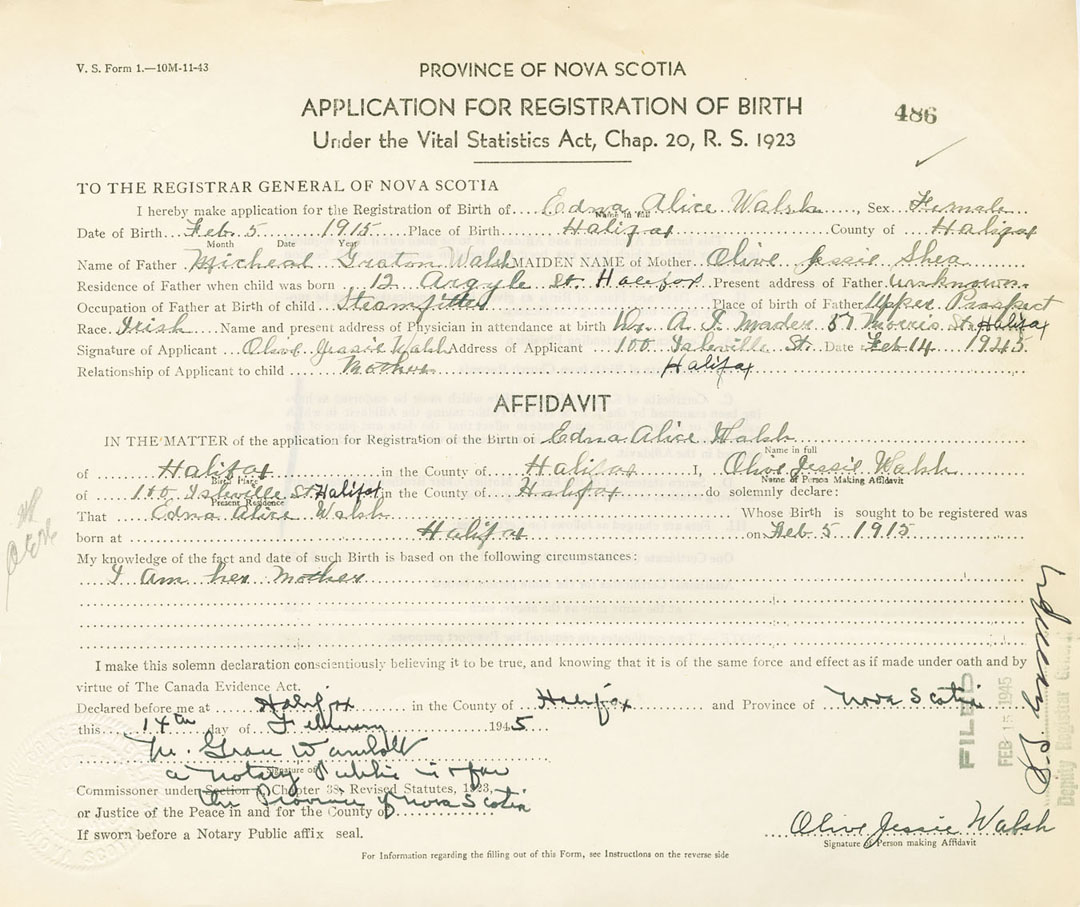 V. S. Form 1.—10M-11-43
PROVINCE OF NOVA SCOTIA
APPLICATION FOR REGISTRATION OF BIRTH
486
Under the Vital Statistics Act, Chap. 20, R. S. 1923
TO THE REGISTRAR GENERAL OF NOVA SCOTIA
I hereby make application for the Registration of Birth of Edna Alice Walsh, Sex Female
Name in full
Date of Birth Feb. 5 1915 Place of Birth Halifax County of Halifax
Month Date Year
Name of Father Micheal Graton Walsh MAIDEN NAME of Mother Olive Jessie Shea
Residence of Father when child was born 12 Argyle St. Halifax Present address of Father unknown
Occupation of Father at Birth of child Steamfitter Place of birth of Father Upper Prospect
Race Irish Name and present address of Physician in attendance at birth Dr. A. I. Mader 57 Morris St. Halifax
Signature of Applicant Olive Jessie Walsh Address of Applicant 100 Isleville St. Date Feb 14 1945
Relationship of Applicant to child Mother Halifax
AFFIDAVIT
IN THE MATTER of the application for Registration of the Birth of Edna Alice Walsh
Name in full
of Halifax in the County of Halifax I, Olive Jessie Walsh
Birth Place Name of Person Making Affidavit
of 100 Isleville St Halifax in the County of Halifax do solemnly declare:
Present Residence
That Edna Alice Walsh Whose Birth is sought to be registered was
born at Halifax on Feb 5 1915
My knowledge of the fact and date of such Birth is based on the following circumstances:
I am her mother
I make this solemn declaration conscientiously believing it to be true, and knowing that it is of the same force and effect as if made under oath and by
virtue of The Canada Evidence Act.
Declared before me at Halifax in the County of Halifax and Province of Nova Scotia
this 14th day of February 1945
a Notary Public in & for
Signature of
Commissioner under Section 7 Chapter 38, Revised Statutes, 1923,
the Province of Nova Scotia
or Justice of the Peace in and for the County of
If sworn before a Notary Public affix seal.
Olive Jessie Walsh
Signature of Person making Affidavit
For Information regarding the filling out of this Form, see Instructions on the reverse side
FILED
FEB 15 1945
Deputy Registrar General